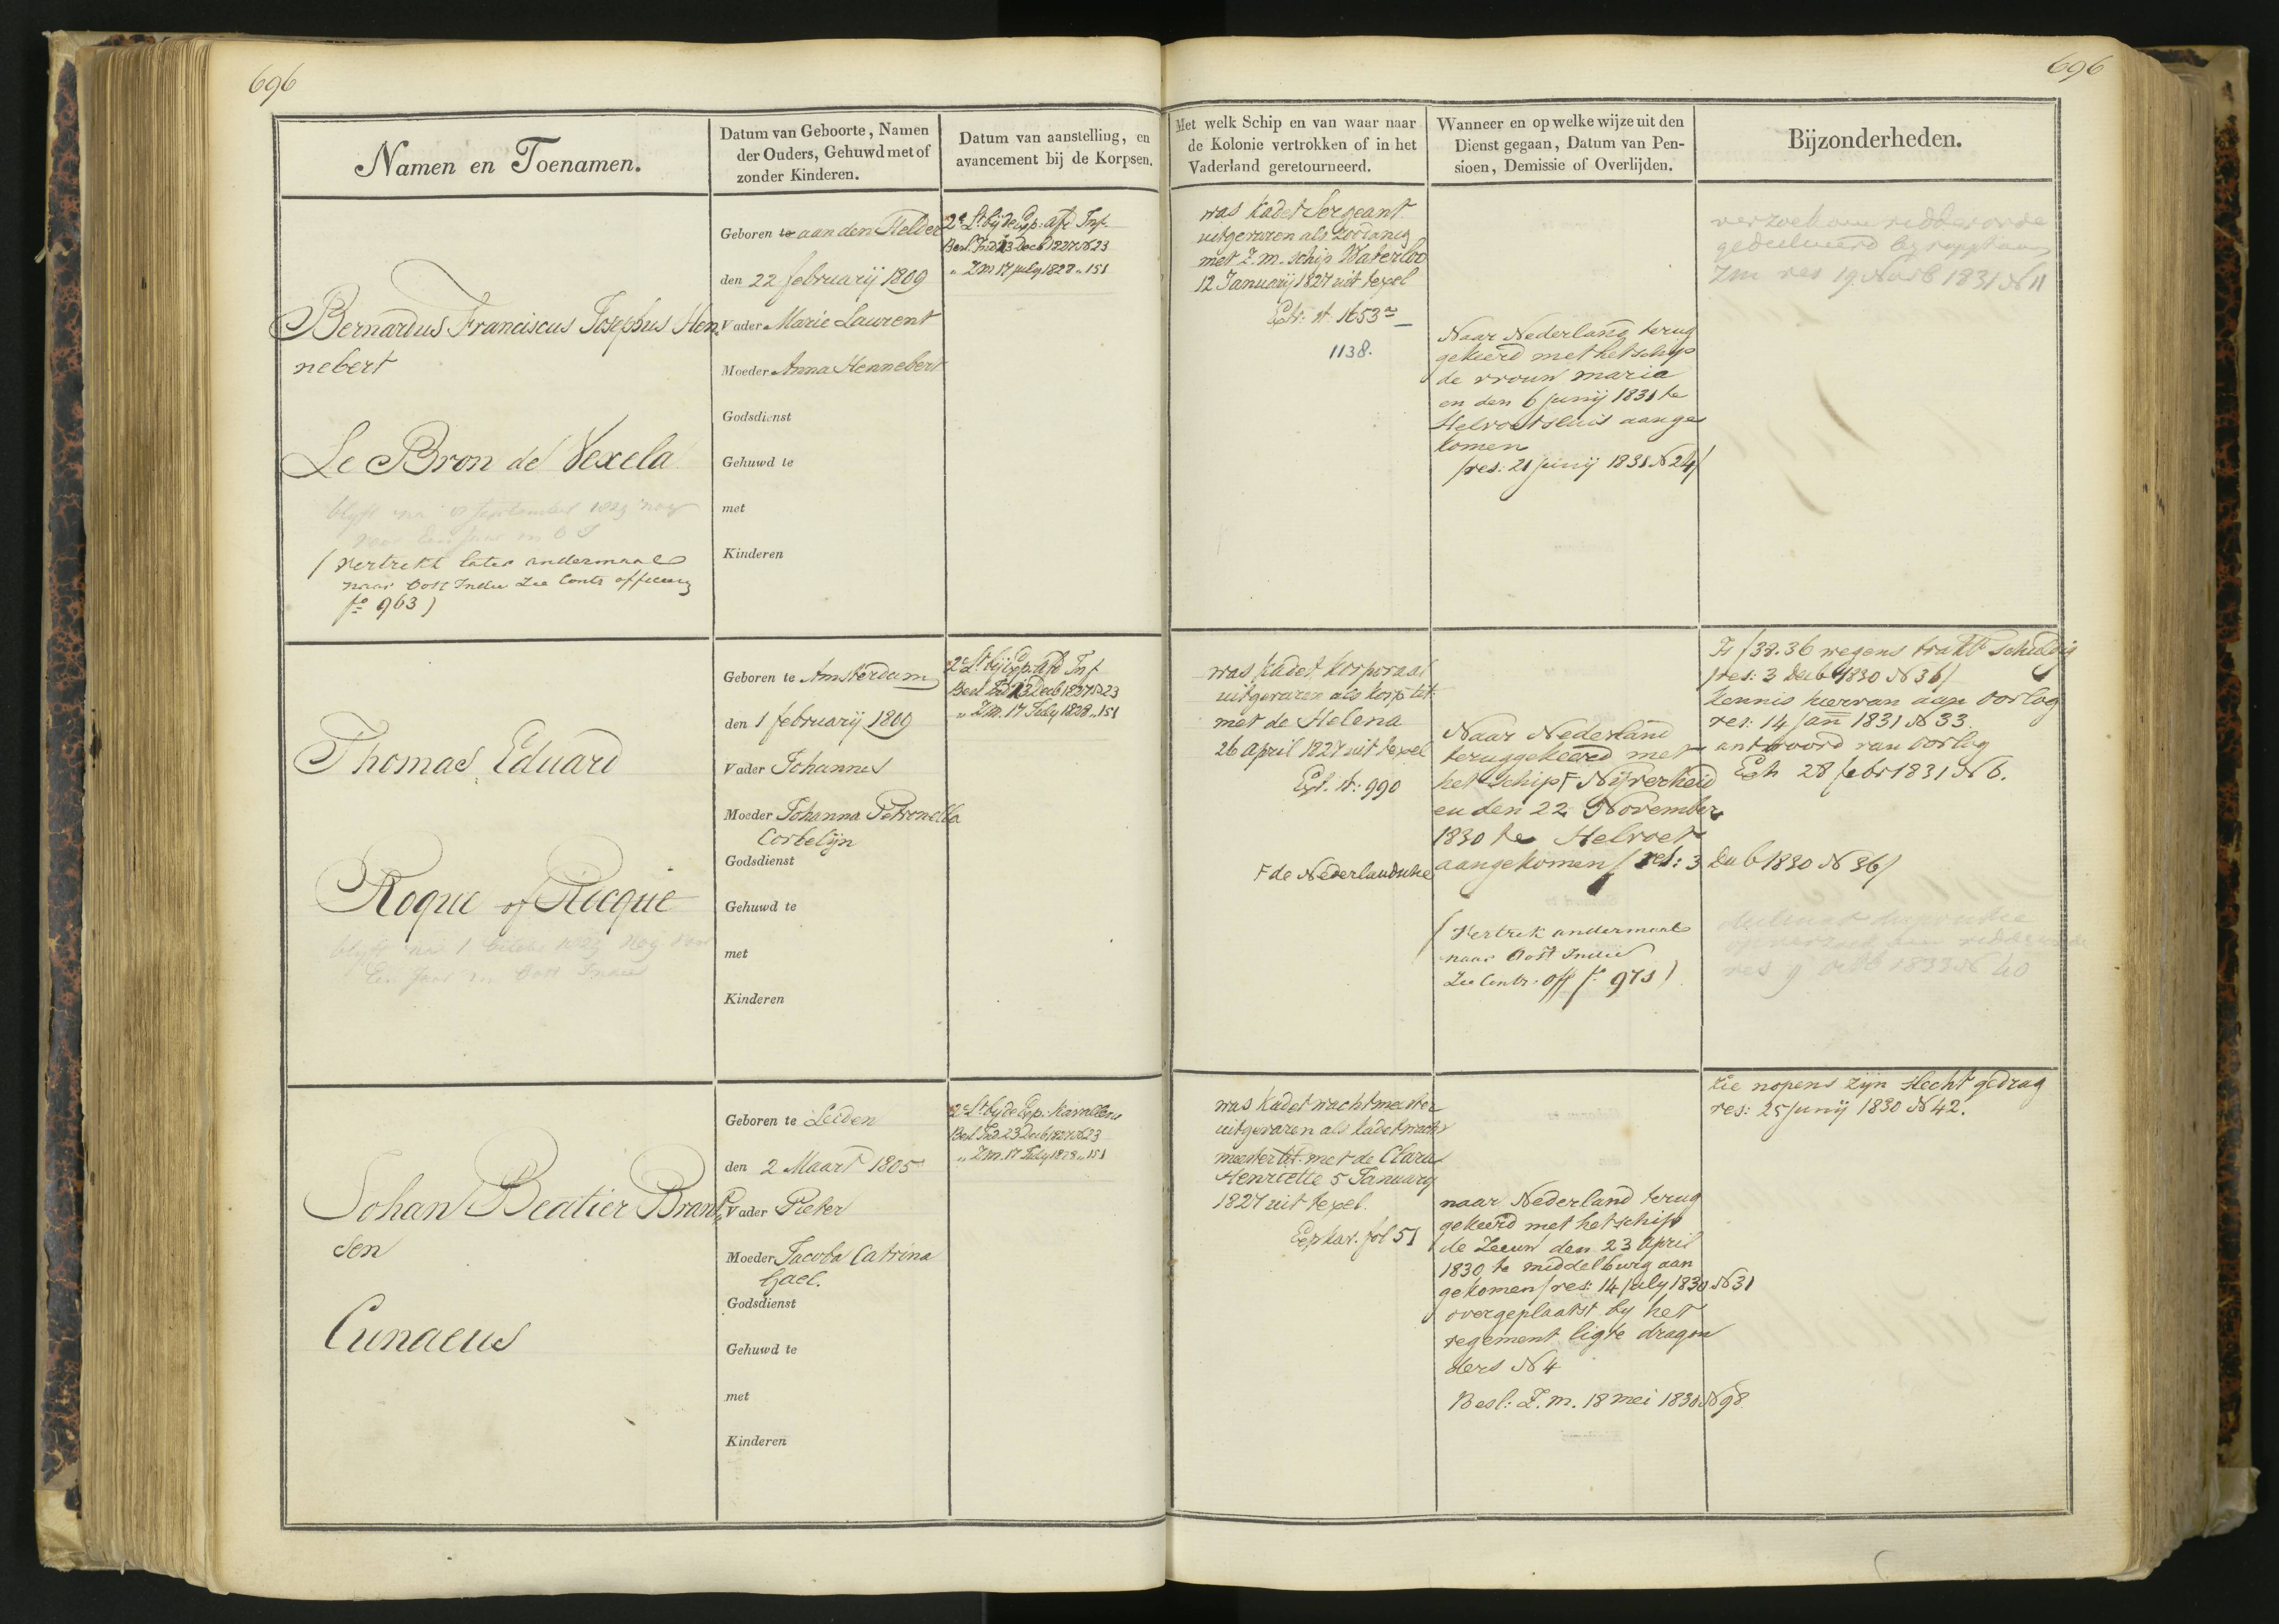 696
696
Namen en Toenamen.
Datum van Geboorte, Namen
der Ouders, Gehuwd met of
zonder Kinderen.
Datum van aanstelling, en
avancement bij de Korpsen.
Met welk Schip en van waar naar
de Kolonie vertrokken of in het
Vaderland geretourneerd.
Wanneer en op welke wijze uit den
Dienst gegaan, Datum van Pen-
sioen, Demissie of Overlijden.
Bijzonderheden.
Bernardus Franciscus Josephus Hen
nebert
Le Bron de Vexela
blijft na september 1829 nog
voor een jaar in O I
(Vertrekt later andermaal
naar Oost Indie Zie Contr officieren
fo 963)
Geboren te aan den Helder
den 22 februarij 1809
Vader Marie Laurent
Moeder Anna Hennebert
Godsdienst
Gehuwd te
met
Kinderen
2e Lt bij de Exp: afd Inf.
Besl. Ind 23 Decb 1827 N 23
" Z M 17 july 1828 " 151
was Kadet Sergeant
uitgevaren als zoodanig
met Z. M. schip Waterloo
12 Januarij 1827 uit texel
1653
1138.
Naar Nederland terug
gekeerd met het schip
de vrouw maria
en den 6 junij 1831 te
Helvoetsluis aange
komen
/res: 21 junij 1831 N 24/
verzoek om ridderorde
Z M res 19 Novb 1831 N 11
Thomas Eduard
Roque of Rocque
blijft na 1 1829 nog voor
een jaar in Oost Indie
Geboren te Amsterdam
den 1 februarij 1809
Vader Johannes
Moeder Johanna Petronella
Corbelijn
Godsdienst
Gehuwd te
met
Kinderen
2e Lt bij Exp: afd Inf
Besl Ind 23 Decb 1827 N 23
" Z M. 17 July 1828 " 151
was Kadet Korporaal
uitgevaren als korp tit:
met de Helena
26 April 1827 uit texel
990
F de Nederlandsche
Naar Nederland
teruggekeerd met
het Schip F Nijverheid
en den 22 November
1830 te Helvoet
aangekomen / res: 3 Decb 1830 N 36/
(Vertrek andermaal
naar Oost Indie
Zie Contr. Off fo 975)
Is f 38.36 wegens trakt schuldig
/res: 3 Decb 1830 N 36/
kennis hiervan aan Oorlog
res: 14 Jan 1831 N 33.
antwoord van Oorlog
28 febr 1831 N 6.
res 9 Octb 1833 N 40
Johan Beatier Brandt
sen
Cunaeus
Geboren te Leiden
den 2 Maart 1805
Vader Pieter
Moeder Jacoba Catrina
Gael.
Godsdienst
Gehuwd te
met
Kinderen
2e Lt bij de Exp: Kavallerie
Besl Ind. 23 Decb 1827 N 23
" Z M. 17 July 1828 " 151
was Kadet wachtmeester
uitgevaren als kadet wacht
meester tit. met de Clara
Henriette 5 January
1827 uit texel.
Exp kav. fol 51
naar Nederland terug
gekeerd met het schip
de Zeeuw den 23 april
1830 te middelburg aan
gekomen /res: 14 july 1830 N 31
overgeplaatst by het
regement ligte dragon
ders N 4
Besl: Z. M. 18 mei 1830 N 98
zie nopens zijn slecht gedrag
res: 25 junij 1830 N 42.